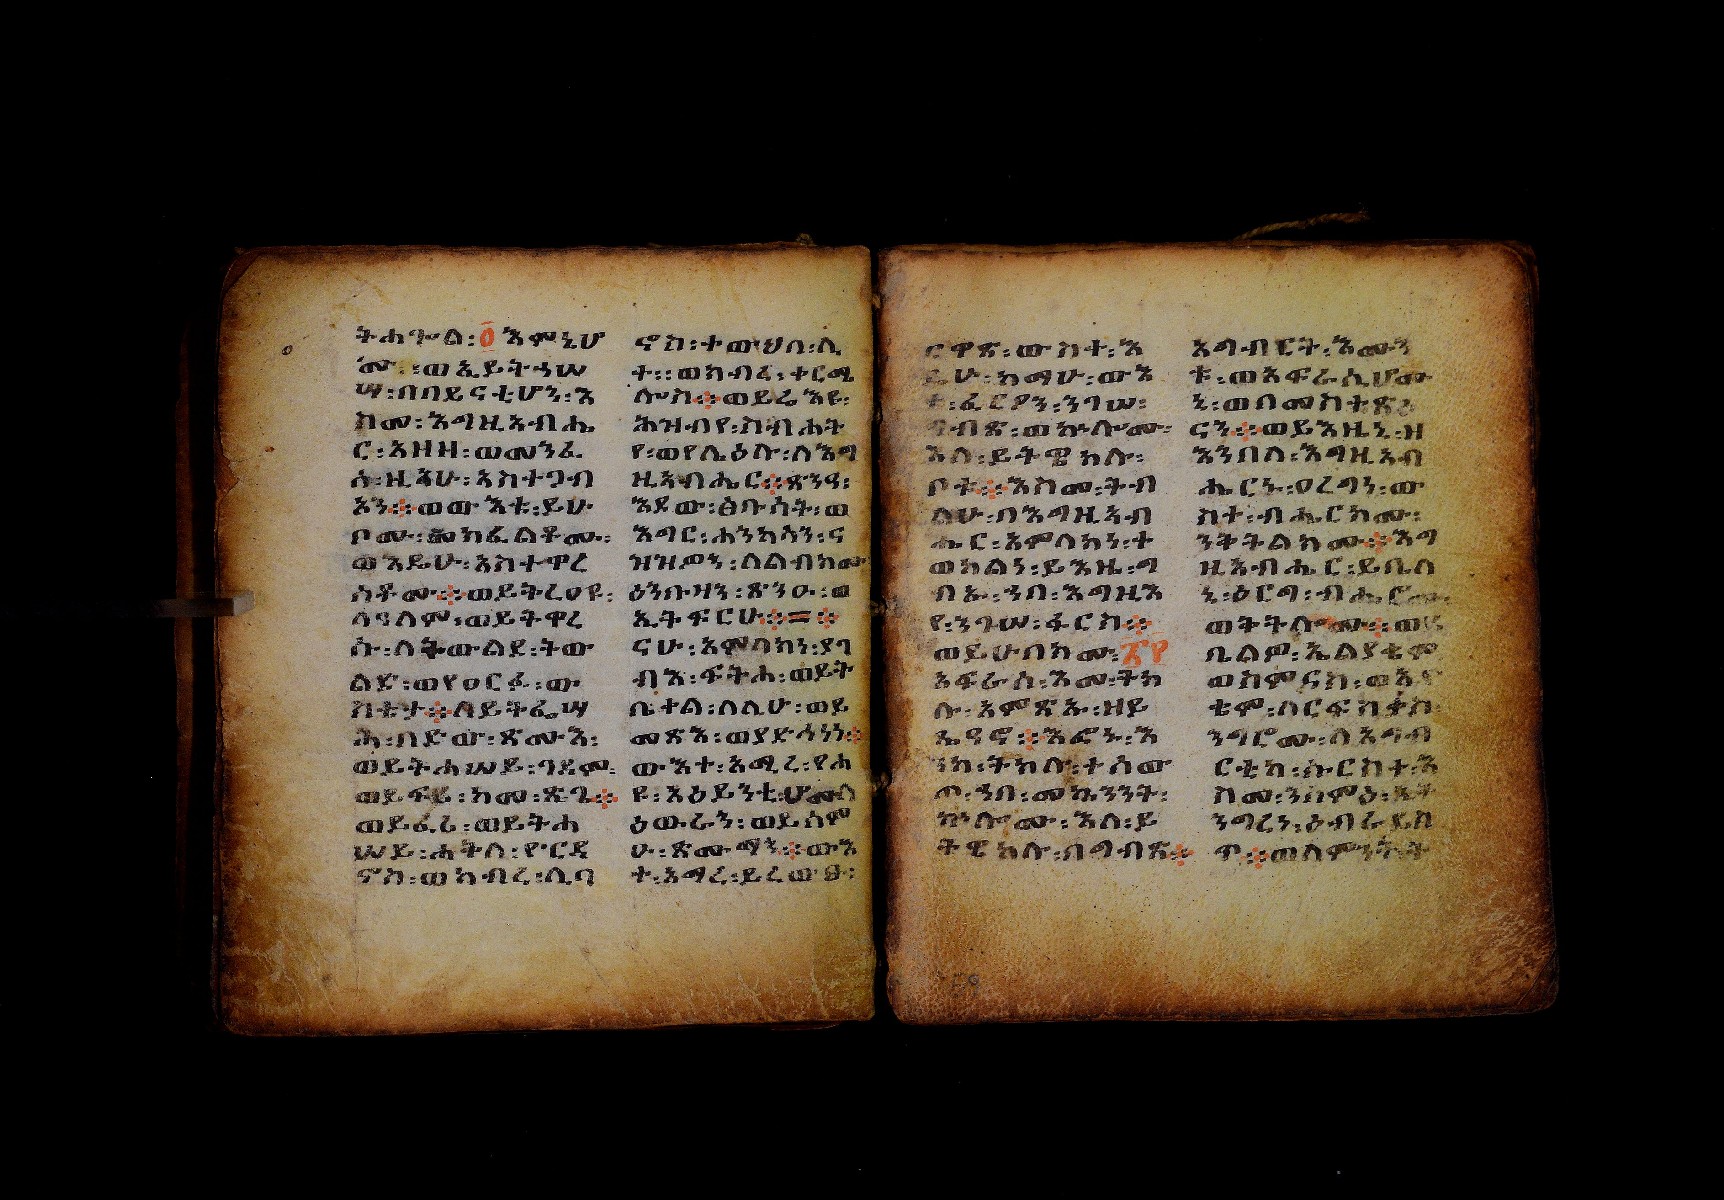 ትሐጐል፡ ፩ እምኔሆ
ሙ፡ ወኢይትኃሠ
ሣ፡ በበይናቲሆን፡ እ
ስመ፡ እግዚአብሔ
ር፡ አዘዘ፡ ወመንፈ
ሱ፡ ዚአሁ፡ አስተጋብ
አን። ወውእቱ፡ ይሁ
ቦሙ፡ መክፈልቶሙ፡
ወእዴሁ፡ አስተዋረ
ሶሙ። ወይትረዐዩ፡
ለዓለም፡ ወይትዋረ
ሱ፡ ለትውልደ፡ ትው
ልድ፡ ወየዐርፉ፡ ው
ስቴታ። ለይትፌሣ
ሕ፡ በድው፡ ጽሙእ፡
ወይትሐሠይ፡ ገዳም፡
ወይፍሬ፡ ከመ፡ ጽጌ።
ወይፈሪ፡ ወይትሐ
ሠይ፡ ሐቅለ፡ ዮርዳ
ኖስ፡ ወክብረ፡ ሊባ
ኖስ፡ ተውህበ፡ ሊ
ተ፡ ወክብረ፡ ቀርሜ
ሎስ። ወይሬእዩ፡
ሕዝብየ፡ ስብሐት
የ፡ ወየሊዕሉ፡ ለእግ
ዚአብሔር። ጽንዓ፡
እደው፡ ፅቡሳት፡ ወ
እግር፡ ሐንካሳን፡ ና
ዝዝዎን፡ ለልብክሙ
ዕንቡዛን፡ ጽንዑ፡ ወ
ኢትፍርሁ። = ።
ናሁ፡ አምላክነ፡ ያገ
ብእ፡ ፍትሐ፡ ወይት
ቤቀል፡ ለሊሁ፡ ወይ
መጽእ፡ ወያድኅነነ።
ውእተ፡ አሚረ፡ የሐ
ዩ፡ አዕይንቲሆሙ፡ ለ
ዕውራን፡ ወይሰም
ዑ፡ ጽሙማን። ውእ
ተ፡ አሚረ፡ ይረውፁ፡
ርዋጽ፡ ውስተ፡ እ
ዴሁ፡ ከማሁ፡ ውእ
ቱ፡ ፈርዖን፡ ንጉሠ፡
ግብጽ፡ ወኵሎሙ፡
እለ፡ ይትዌከሉ፡
ቦቱ። እስመ፡ ትብ
ልሁ፡ በእግዚአብ
ሔር፡ አምላክነ፡ ተ
ወከልነ፡ ይእዜ፡ ግ
ብኡ፡ ኀበ፡ እግዚእ
የ፡ ንጉሠ፡ ፋርስ።
ወይሁበክሙ፡ ፳፻
አፍራሰ፡ እመ፡ ትክ
ሉ፡ አምጽኡ፡ ዘይ
ጼዓኖ። እፎኑ፡ እ
ንከ፡ ትክሉ፡ ተሰው
ጦ፡ ኀበ፡ መኳንንት፡
ኵሎሙ፡ እለ፡ ይ
ትዌከሉ፡ በግብጽ።
አግብርት፡ እሙን
ቱ፡ ወአፍራሲሆሙ
ኒ፡ ወበመስተጽዕ
ናን። ወይእዜኒ፡ ዘ
እንበለ፡ እግዚአብ
ሔርኑ፡ ዐረግነ፡ ው
ስተ፡ ብሔርክሙ፡
ንትቃተልክሙ። እግ
ዚአብሔር፡ ይቤለ
ኒ፡ ዕርግ፡ ብሔሮሙ፡
ወትትሎሙ። ወይ
ቤልዎ፡ ኤልያቄም
ወሶምናስ፡
ለርፍስቂስ
ንግሮሙ፡ ለአግብ
ርቲከ፡ ሱርስተ፡ እ
ስመ፡ ንሰምዕ፡ ኢት
ንግረነ፡ ዕብራይስ
ጥ። ወለምንት